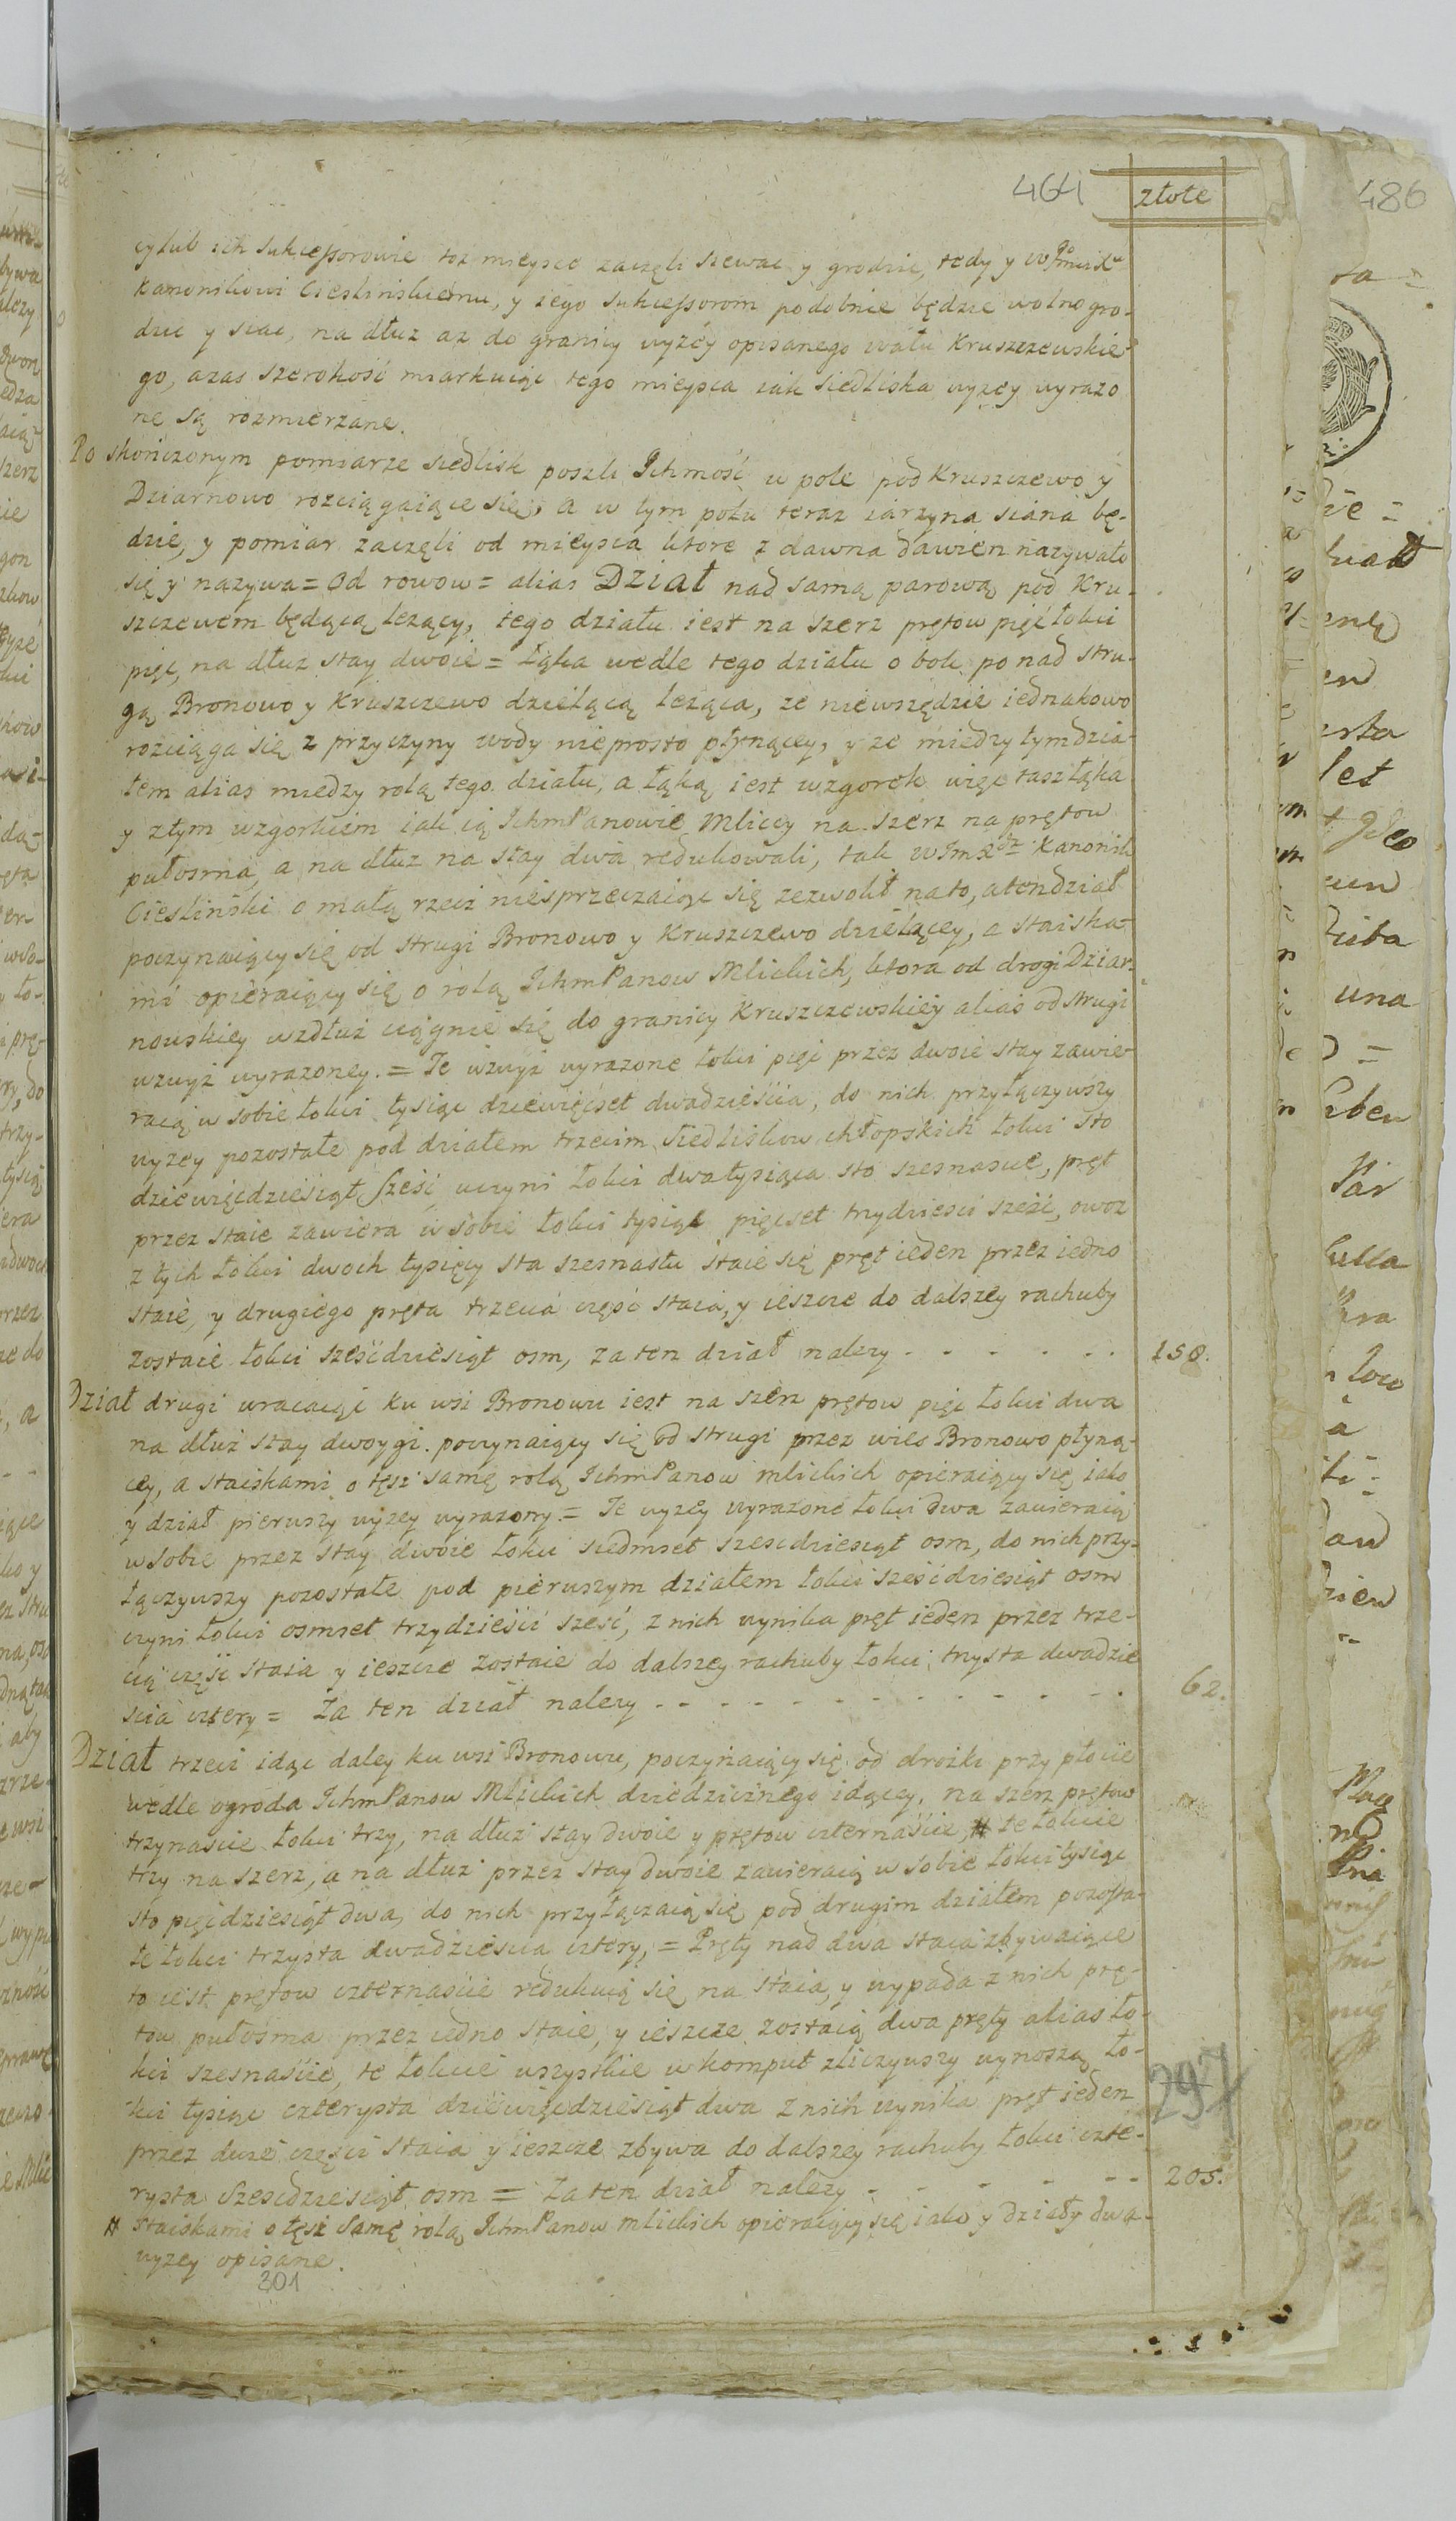 464
złote
cy lub ich sukcessorowie toż mieysce zaczęli siewac y grodzic, tedy y
Kanonikowi Cieslinskiemu, y iego sukcessorom podobnie będzie wolno gro-
dzic y siac, na dłuz az do granicy wyżéy opisanego wału Kruszczewskie-
go, azas szerokość miarkuiąc tego mieysca iak siedliska wyzey wyrazo
ne są rozmierzane.
Po skończonym pomiarze siedlisk poszli Ichmość w pole pod Kruszczewo y
Dziarnowo rozciągaiące się, a w tym polu teraz iarzyna siana bę-
dzie, y pomiar zaczęli od mieysca ktore z dawna dawien nazywało
się y nazywa = Od rowow = alias Dział nad samą parową pod Kru-
szczewem będącą lezący, tego działu iest na szerz prętow pięć łokci
pięc, na dłuz stay dwoie = Łąka wedle tego działu o bok ponad stru-
gą Bronowo y Kruszczewo dzielącą leząca, ze niewszędzie iednakowo
rozciąga się z przyczyny wody nieprosto płynącey, y ze miedzy tym dzia-
łem alias miedzy rolą tego działu, a łąką iest wzgorek więc taż łąka
y z tym wzgorkiem iak ią IchmPanowie Mliccy na szerz na prętow
pułosma, a na dłuz na stay dwa redukowali, tak WImXdz Kanonik
Ciesliński o małą rzecz niesprzeczaiąc się zezwolił na to, a ten dział
poczynaiący się od strugi Bronowo y Kruszczewo dzielącey, a staiska-
mi opieraiący się o rolą IchmPanow Mlickich, ktora od drogi Dziar-
nowskiey wzdłuz ciągnie się do granicy Kruszczewskiéy alias od strugi
wzwyż wyrazoney. = Te wzwyż wyrazone łokci pięc przez dwoie stay zawie-
raią w sobie łokci tysiąc dziewięcset dwadzieścia, do nich przyłączywszy
wyzey pozostałe pod działem trzecim siedliskow chłopskich łokci sto
dziewięcdziesiąt sześć uczyni łokci dwatysiąca sto szesnascie, pręt
przez staie zawiera w sobie łokci tysiąc pięcset trzydziesci sześć, owoz
z tych łokci dwoch tysięcy sta szesnastu staie się pręt ieden przez iedno
staie, y drugiego pręta trzecia częsc staia, y ieszcze do dalszey rachuby
zostaie łokci sześćdziesiąt osm, za ten dział nalezy - - - - - -
158.
Dział drugi wracaiąc ku wsi Bronowu iest na szerz prętow pięc łokci dwa
na dłuż stay dwoygi. poczynaiący się od strugi przez wies Bronowo płyną-
cey, a staiskami o tęsz samę rolą IchmPanow Mlickich opieraiący się iako
y dział pierwszy wyzey wyrazony. = Te wyzey wyrazone łokci dwa zawieraią
w sobie przez stay dwoie łokci siedmset szescdziesiąt osm, do nich przy-
łączywszy pozostałe pod pierwszym działem łokci sześćdziesiąt osm
czyni łokci osmset trzydzieści sześć, z nich wynika pręt ieden przez trze-
cią częśc staia y ieszcze zostaie do dalszey rachuby łokci trzysta dwadzie
scia cztery = Za ten dział nalezy - - - - - - - - - -
62.
Dział trzeci idąc daley ku wsi Bronowu, poczynaiący się od drożki przy płocie
wedle ogroda IchmPanow Mlickich dziedzicznego idącey, na szerz prętow
trzynascie łokci trzy, na dłuż stay dwoie y prętow czternaście, # te łokcie
trzy na szerz, a na dłuż przez stay dwoie zawieraią w sobie łokci tysiąc
sto pięćdziesiąt dwa, do nich przyłączaią się pod drugim działem pozosta-
łe łokci trzysta dwadziescia cztery, = Pręty nad dwa staia zbywaiące
to iest prętow czternascie redukuią się na staia, y wypada z nich prę-
tow pułosma przez iedno staie, y ieszcze zostaią dwa pręty alias ło-
kci szesnaście, te łokcie wszystkie w komput zliczywszy wynoszą ło-
kci tysiąc czterysta dziewięcdziesiąt dwa z nich wynika pręt ieden
297
przez dwie części staia y ieszcze zbywa do dalszey rachuby łokci czte-
rysta szescdziesiąt osm = Za ten dział nalezy - - - - - -
205.
# staiskami o tęsz samę rolą IchmPanow Mlickich opieraiący się iako y działy dwa
wyzey opisane.
301
486